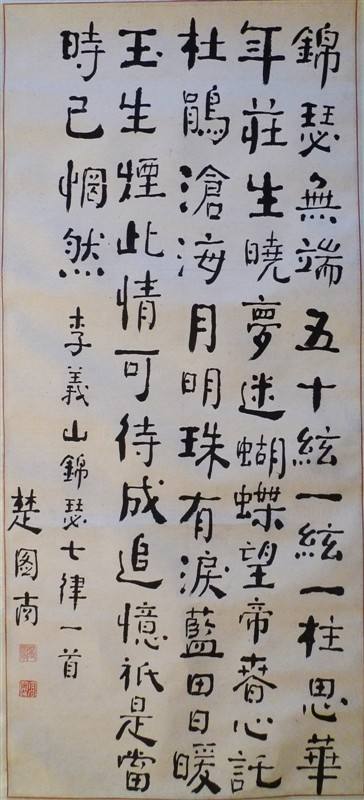 錦瑟無端五十絃一絃一柱思華
年莊生曉夢迷蝴蝶望帝春心託
杜鵑滄海月明珠有淚藍田日暖
玉生煙此情可待成追憶祇是當
時已惘然 李義山錦瑟七律一首
楚图南